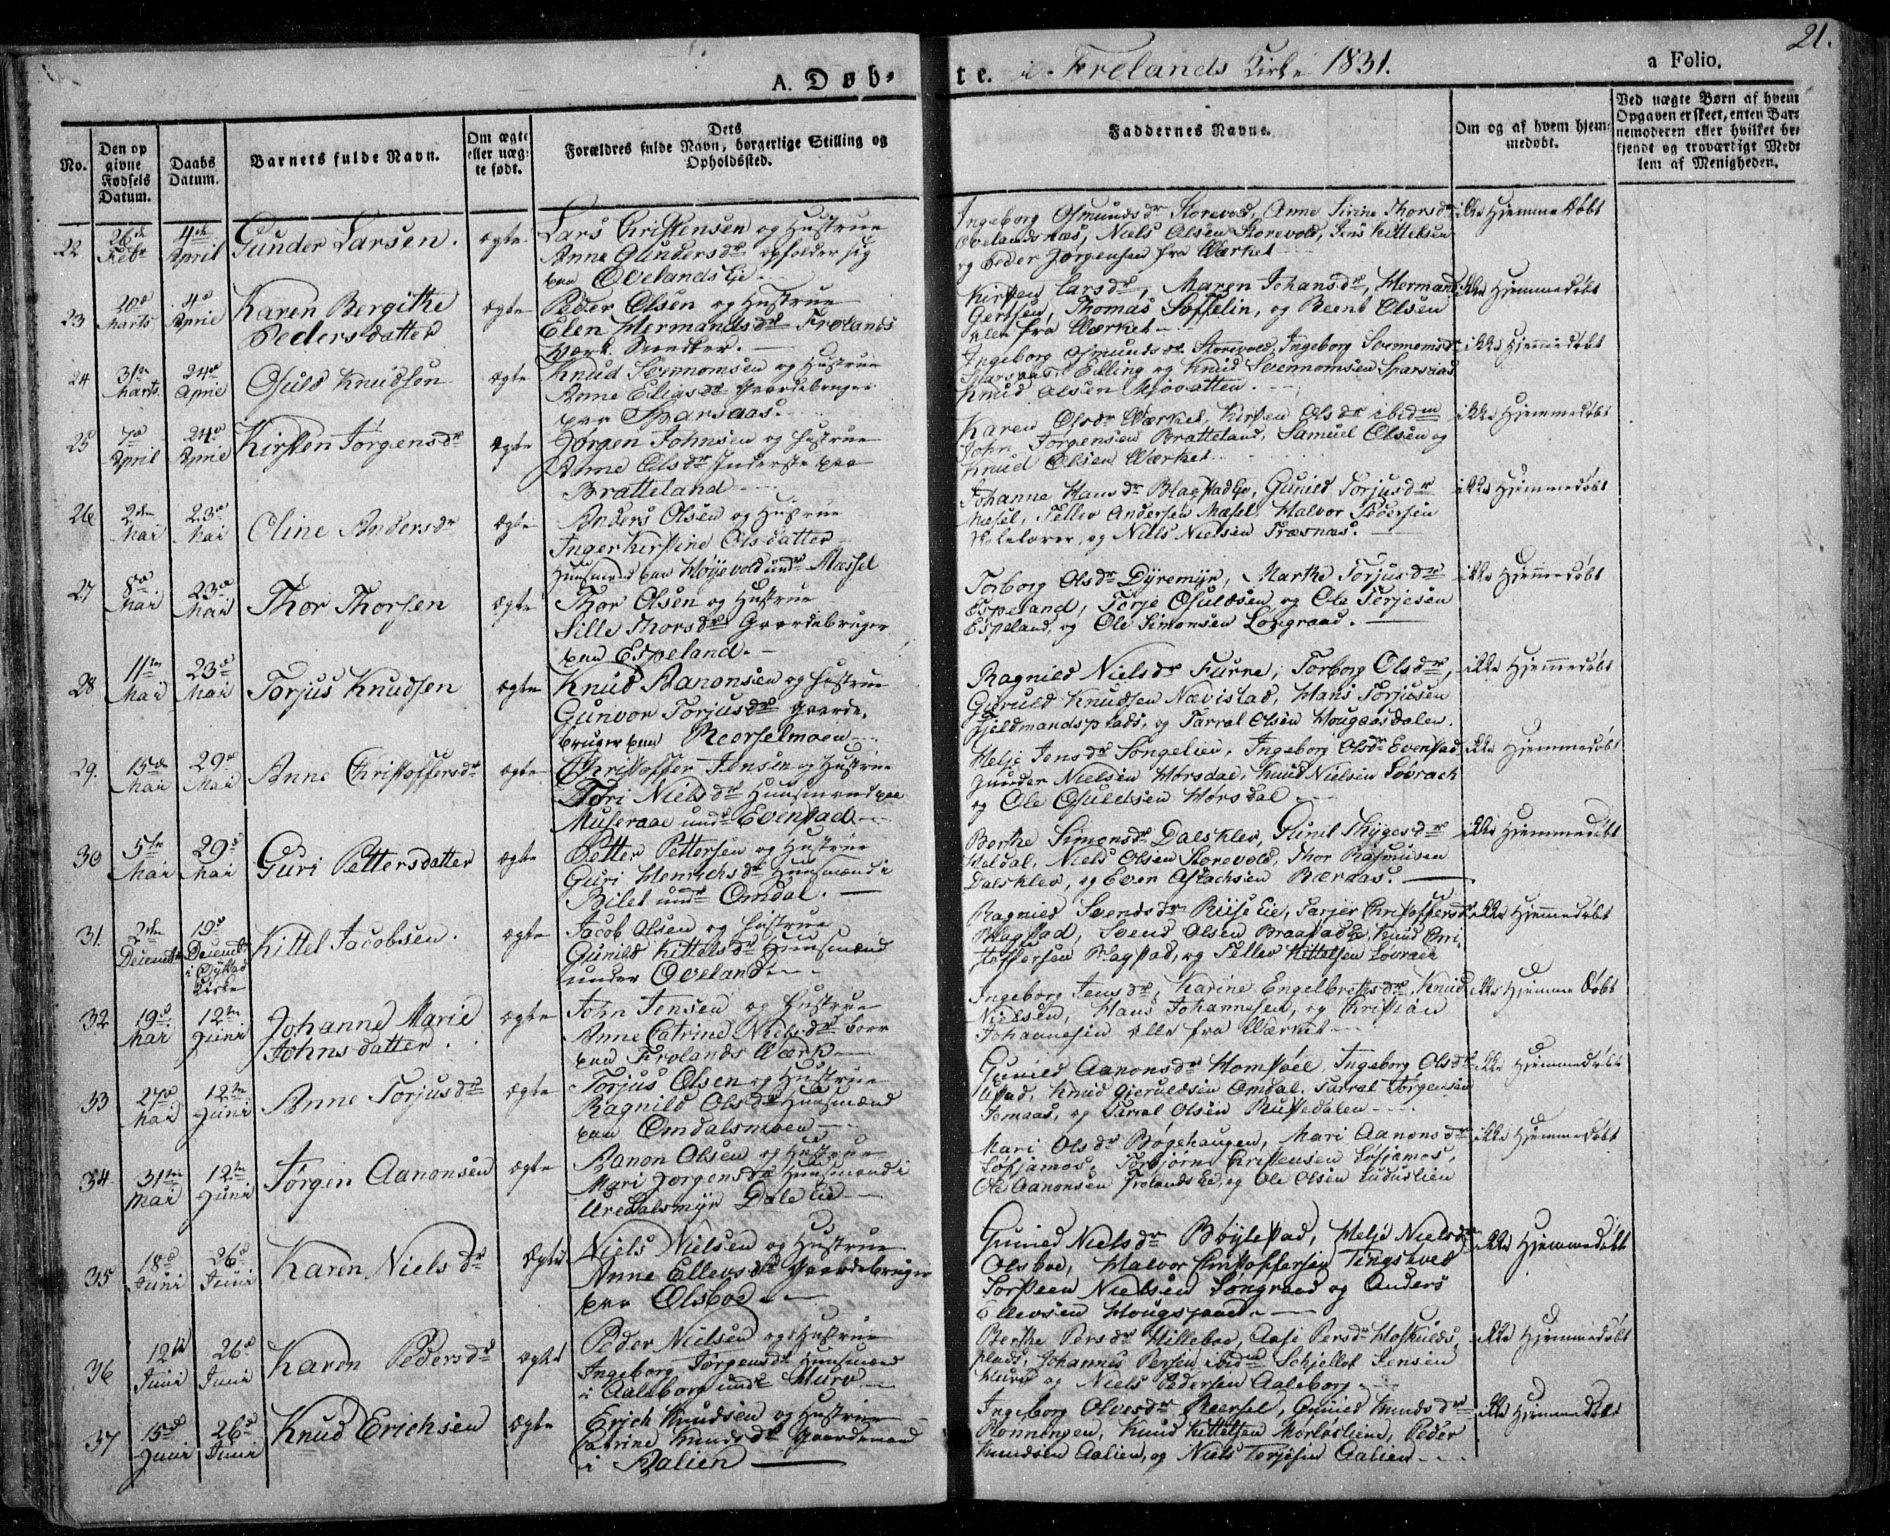 21.
A. Døb-
te. i Frolands Kirke 1831.
a Folio.
No.
Den op
givne
Fødsels
Datum.
Daabs
Datum.
Barnets fulde Navn.
Om ægte
eller uæg-
te født.
Dets
Forældres fulde Navn, borgerlige Stilling og
Opholdssted.
Faddernes Navne.
Om og af hvem hjem-
medøbt.
Ved uægte Børn af hvem
Opgaven er skeet, enten Bar-
nemoderen eller hvilket be-
kjendt og troværdigt Med-
lem af Menigheden.
22 26de Febr 4de April Gunder Larsen. ægte
Lars Christensen og Hustrue
Anne Gundersdr opholder sig
paa Ovelands Eie
Ingeborg Osmundsdr Storevold, Anne Sirine Thorsdr
Ovelandsnæs, Niels Olsen Storevold, Jens Kittelsen
og Peder Jørgensen fra Værket
ikke Hjemme Døbt
23 20d Marts 4d April Karen Bergithe
Pedersdatter
ægte
Peder Olsen og Hustrue
Elen Hermandsdr Frolands
Værk. Snedker.
Kirsten Larsdr, Maren Johansdr, Hermand
Gertsen, Thomas Soffelin, og Beent Olsen
alle fra Værket
ikke Hjemmedøbt
24 31te Marts 24d April Osuld Knudsøn ægte
Knud Svennomsen og Hustrue
Anne Eliasdr Gaardebruger
paa Sparsaas.
Ingeborg Osmundsdr Storevold, Ingeborg Svennomsdr
Sparsaas, Elling og Knud Svennomsen Sparsaas
Knud Olsen Mjovatten.
ikke Hjemmedøbt
25 7d April 24d April Kirsten Jørgensdr ægte
Jørgen Johnsen og Hustrue
Anne Olsdr Inderste paa
Bratteland
Karen Olsdr Værket, Kirsten Olsdr ibidm
John Jørgensen Bratteland, Samuel Olsen og
Knud Olsen Værket.
ikke Hjemmedøbt
26 2den Mai 23d Mai Oline Andersdr ægte
Anders Olsen og Hustrue
Inger Kirstine Olsdatter
Huusmand paa Høyevold undr Mæssel
Johanne Hansdr Blagstad Eie, Gunild Torjusdr
Mæsel, Tellev Andersen Mæsel, Halvor Pedersen
Skolelærer, og Niels Nielsen Træsnæs.
ikke Hjemmedøbt
27 8d Mai 23d Mai Thor Thorsen ægte
Thor Olsen og Hustrue
Sille Thorsdr Gaardebruger
paa Espeland.
Torborg Olsdr Dyremyr, Marthe Torjusdr
Espeland, Terje Osuldsen og Ole Terjesen
Espeland, og Ole Simonsen Longraad.
ikke Hjemmedøbt
28 11te Mai 23d Mai Torjus Knudsen ægte
Knud Aanonsen og Hustrue
Gunvor Torjusdr Gaarde-
bruger paa Meorselmoen
Ragnild Nielsdr Furne, Torborg Olsdr,
Gjeruld Knudsen Nævistad, Hans Torjusen
Fjeldmandsplads, og Tarral Olsen Hougaasdalen.
ikke Hjemmedøbt
29. 15d Mai 29d Mai Anne Christoffersdr ægte
Christoffer Jensen og Hustrue
Tori Nielsdr Huusmand paa
Museraae undr Evenstad
Helje Jensdr Songelien, Ingeborg Olsdr Evenstad
Gunder Nielsen Hørsdal, Knud Nielsen Løvrach
og Ole Osuldsen Hørsdal
ikke Hjemmedøbt
30 5te Mai 29d Mai Guri Pettersdatter ægte
Petter Pettersen og Hustrue
Guri Henrichsdr Huusmand i
Bilet undr Omdal.
Berthe Simonsdr Dalsklev, Gunil Thygesdr
Heldal, Niels Olsen Storevold, Thor Rasmusen
Dalsklev, og Even Aslachsen Bæraas.
ikke Hjemmedøbt
31. 2den Decembr 19d Decembr
i Øystad
Kirke
Kittel Jacobsen. ægte
Jacob Olsen og Hustrue
Gunild Kittelsdr Huusmand
under Oveland
Ragnild Svendsdr Riise Eie, Tarjer Christoffersdr
Blagstad, Svend Olsen Braastad Eie, Knud Chri-
stoffersen Blagstad, og Tellev Kittelsen Løvrach
ikke Hjemmedøbt
32 19d Mai 12te Juni Johanne Marie
Johnsdatter.
ægte
John Jensen og Hustrue
Anne Catrine Nielsdr boer
paa Frolands Værk
Ingeborg Jensdr, Karine Engelbretsdr, Knud
Nielsen, Hans Johannesen, og Christian
Johannesen alle fra Værket
ikke Hjemme Døbt
33 27d Mai 12te Juni Anne Torjusdr ægte
Torjus Olsen og Hustrue
Ragnild Olsdr Huusmand
paa Omdalsmoen
Gunild Aanonsdr Homstøel, Ingeborg Olsdr
Ufstad, Knud Gjeruldsen Omdal, Tarral Jørgensen
Jomaas, og Tarral Olsen Rustedalen
ikke Hjemmedøbt
34 31te Mai 12te Juni Jørgen Aanonsen ægte
Aanon Olsen og Hustrue
Mari Jørgensdr Huusmand i
Uredalsmyr Dale Eie
Mari Olsdr Bøgehaugen, Mari Aanonsdr
Løsjamos, Torbjørn Christensen Løsjamos,
Ole Aanonsen Frolands Eie, og Ole Olsen Luduslien
ikke Hjemmedøbt
35 18d Juni 26d Juni Karen Nielsdr Ægte
Niels Nielsen og Hustrue
Anne Ellevsdr Gaardebruger
paa Olsboe
Gunild Nielsdr Bøylestad, Helje Nielsdr
Olsboe, Halvor Christoffersen Tingstved
Torsteen Nielsen Songraad og Anders
Ellevsen Hougsjaae
ikke Hjemmedøbt
36 12te Juni 26d Juni Karen Pedersdr ægte
Peder Nielsen og Hustrue
Ingeborg Jørgensdr Huusmand
i Aaleborg undr Hurv
Berthe Persdr Hilleboe, Aase Persdr Hoskulds
plads, Johannes Persen ibidm Schjellot Jensen
Hurv og Niels Pedersen Aaleborg
ikke Hjemmedøbt
37 15d Juni 26d Juni Knud Erichsen ægte
Erich Knudsen og Hustrue
Catrine Knudsdr Gaardemand
i Aalien
Ingeborg Olvesdr Meersel, Gunild Knudsdr
Rønningen, Knud Kittelsen Mørløslien, Peder
Knudsen Aalien, og Niels Terjesen Aalien
ikke Hjemmedøbt